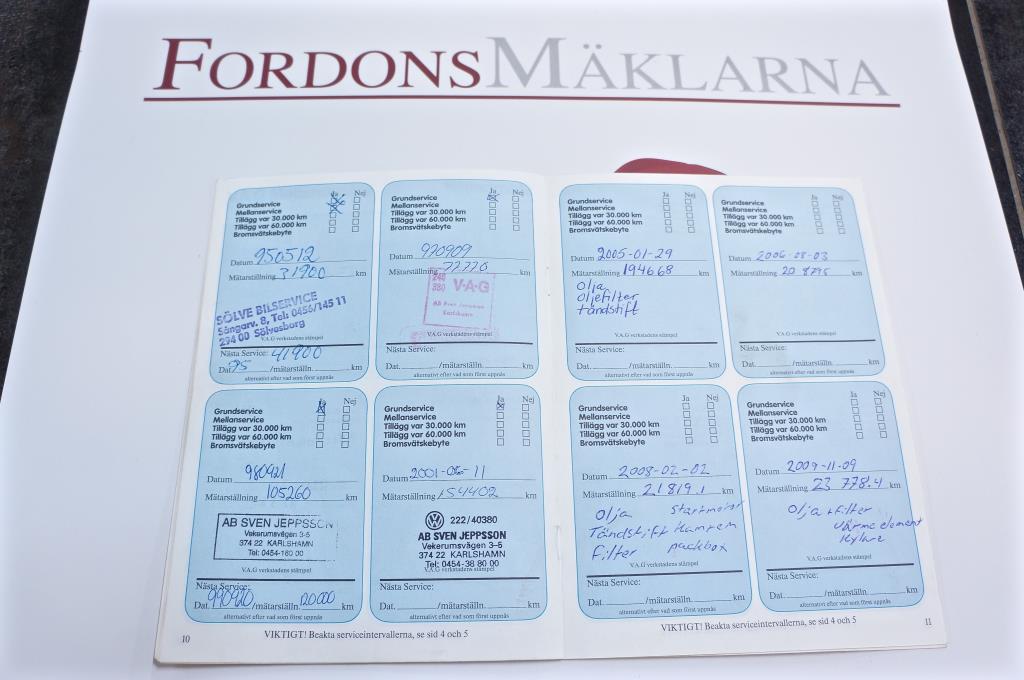 FORDONSMÄKLARNA
Ja Nej
Grundservice
Mellanservice
Tillägg var 30.000 km
Tillägg var 60.000 km
Bromsvätskebyte
Datum 950512
Mätarställning 31900 km
SÖLVE BILSERVICE
Sångarv. 8, Tel: 0456/145 11
294 00 Sölvesborg
V.A.G verkstadens stämpel
Nästa Service: 41900
Dat. 95 /mätarställn. km
alternativt efter vad som först uppnås
Ja Nej
Grundservice
Mellanservice
Tillägg var 30.000 km
Tillägg var 60.000 km
Bromsvätskebyte
Datum 970909
Mätarställning 77770 km
240
380 V·A·G
AB Sven Jeppsson
Karlshamn
V.A.G verkstadens stämpel
Nästa Service:
Dat. /mätarställn. km
alternativt efter vad som först uppnås
Ja Nej
Grundservice
Mellanservice
Tillägg var 30.000 km
Tillägg var 60.000 km
Bromsvätskebyte
Datum 980921
Mätarställning 105260 km
AB SVEN JEPPSSON
Vekerumsvägen 3-5
374 22 KARLSHAMN
Tel: 0454-180 00
V.A.G verkstadens stämpel
Nästa Service:
Dat. 990920 /mätarställn. 120000 km
alternativt efter vad som först uppnås
Ja Nej
Grundservice
Mellanservice
Tillägg var 30.000 km
Tillägg var 60.000 km
Bromsvätskebyte
Datum 2001-06-11
Mätarställning 154402 km
222/40380
AB SVEN JEPPSSON
Vekerumsvägen 3-5
374 22 KARLSHAMN
Tel: 0454-38 80 00
V.A.G verkstadens stämpel
Nästa Service:
Dat. /mätarställn. km
alternativt efter vad som först uppnås
10 VIKTIGT! Beakta serviceintervallerna, se sid 4 och 5
Ja Nej
Grundservice
Mellanservice
Tillägg var 30.000 km
Tillägg var 60.000 km
Bromsvätskebyte
Datum 2005-01-29
Mätarställning 194668 km
Olja
Oljefilter
tändstift
V.A.G verkstadens stämpel
Nästa Service:
Dat. /mätarställn. km
alternativt efter vad som först uppnås
Ja Nej
Grundservice
Mellanservice
Tillägg var 30.000 km
Tillägg var 60.000 km
Bromsvätskebyte
Datum 2006-08-03
Mätarställning 208795 km
V.A.G verkstadens stämpel
Nästa Service:
Dat. /mätarställn. km
alternativt efter vad som först uppnås
Ja Nej
Grundservice
Mellanservice
Tillägg var 30.000 km
Tillägg var 60.000 km
Bromsvätskebyte
Datum 2008-02-02
Mätarställning 21819.1 km
Olja Startmotor
Tändstift
Filter packbox
V.A.G verkstadens stämpel
Nästa Service:
Dat. /mätarställn. km
alternativt efter vad som först uppnås
Ja Nej
Grundservice
Mellanservice
Tillägg var 30.000 km
Tillägg var 60.000 km
Bromsvätskebyte
Datum 2009-11-09
Mätarställning 23 778.4 km
Olja + Filter
Värme element
Kylare
V.A.G verkstadens stämpel
Nästa Service:
Dat. /mätarställn. km
alternativt efter vad som först uppnås
VIKTIGT! Beakta serviceintervallerna, se sid 4 och 5 11